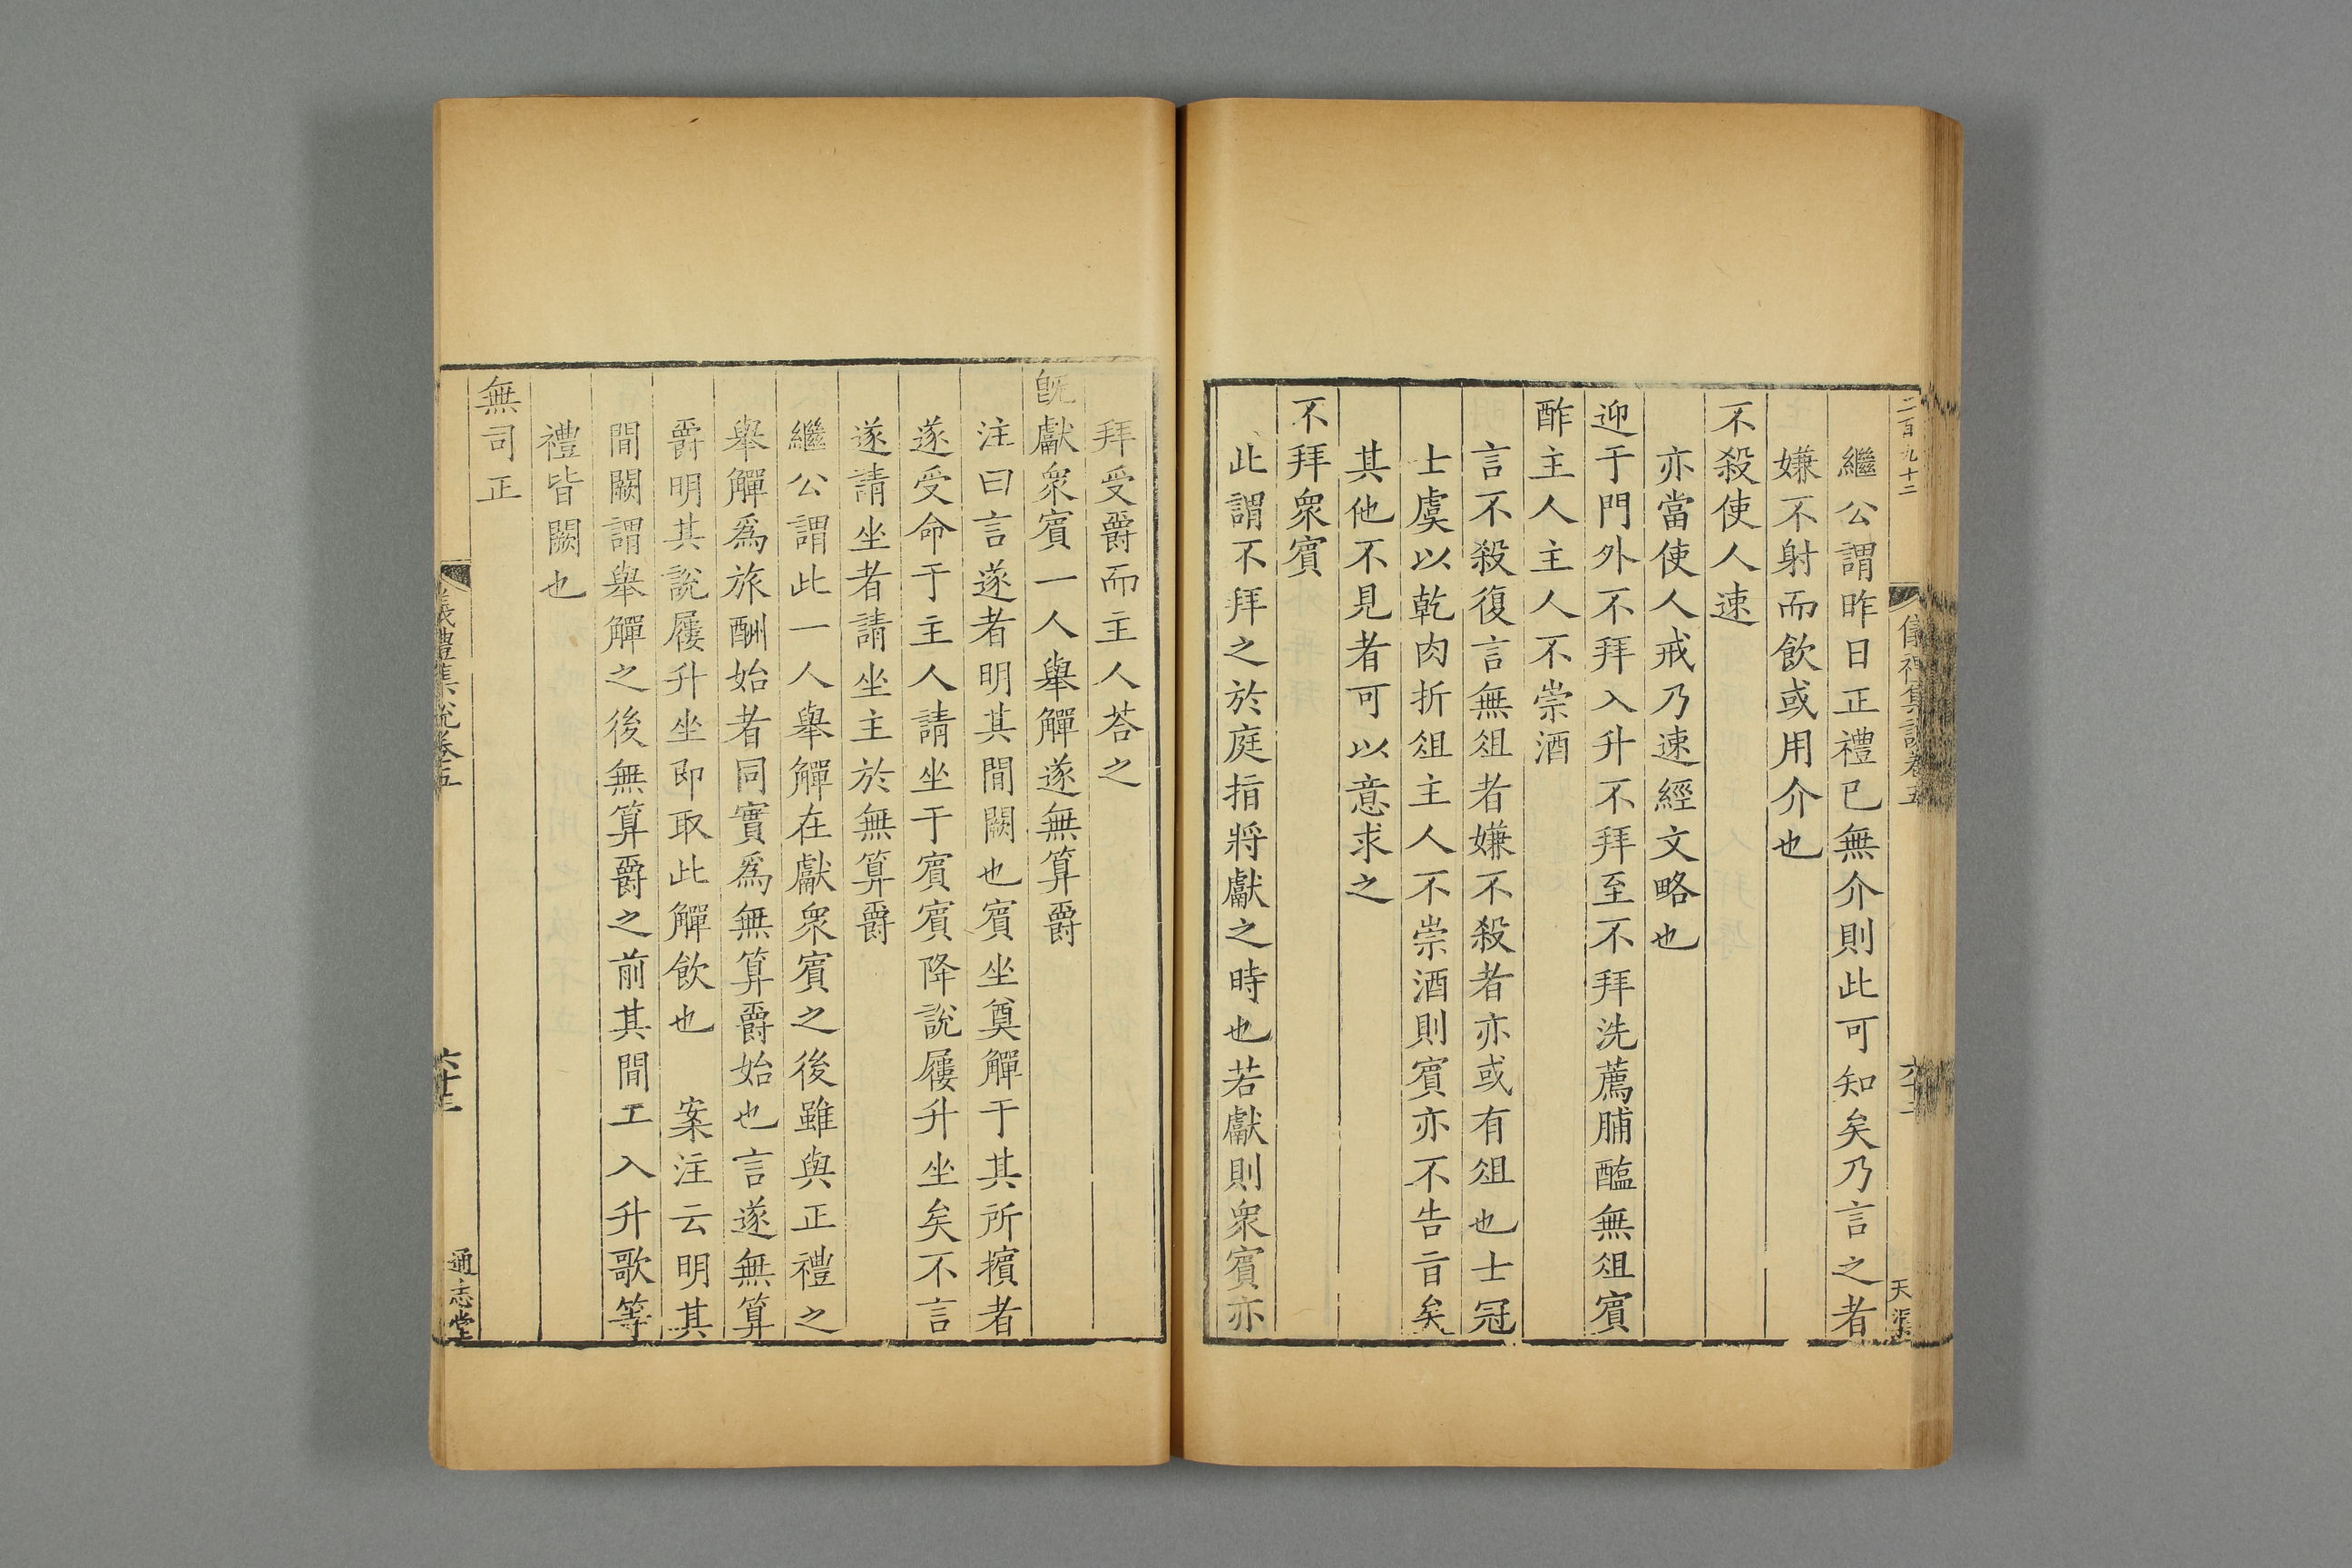 二百九十二
儀禮集説卷五
六十二
天渠
繼公謂昨日正禮已無介則此可知矣乃言之者
嫌不射而飲或用介也
不殺使人速
亦當使人戒乃速經文略也
迎于門外不拜入升不拜至不拜洗薦脯醢無俎賓
酢主人主人不崇酒
言不殺復言無俎者嫌不殺者亦或有俎也士冠
士虞以乾肉折俎主人不崇酒則賓亦不告旨矣
其他不見者可以意求之
不拜衆賓
此謂不拜之於庭指將獻之時也若獻則衆賓亦
拜受爵而主人荅之
既獻衆賓一人舉觶遂無算爵
注曰言遂者明其閒闕也賓坐奠觶于其所擯者
遂受命于主人請坐于賓賓降說屨升坐矣不言
遂請坐者請坐主於無算爵
繼公謂此一人舉觶在獻衆賓之後雖與正禮之
舉觶爲旅酬始者同實爲無算爵始也言遂無算
爵明其說屨升坐即取此觶飲也　案注云明其
閒闕謂舉觶之後無算爵之前其閒工入升歌等
禮皆闕也
無司正
儀禮集說卷五
六十三
通志堂